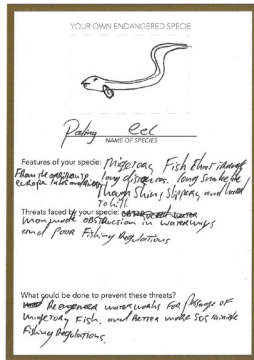 YOUR OWN ENDANGERED SPECIE
Paling eel
NAME OF SPECIES
Features of your species: Migetory Fish that travel
From the caribian to long distances. long snakelike
europa takes
though Skinn, Slippery and hard
to kill.
Threats faced by your species:
man made obstruction in waterways
and poor Fishing Regulations
What could be done to prevent these threats?
Reengeneer waterworks for passage of
migetory Fish. and Better more sustainable
Fishing Regulations.